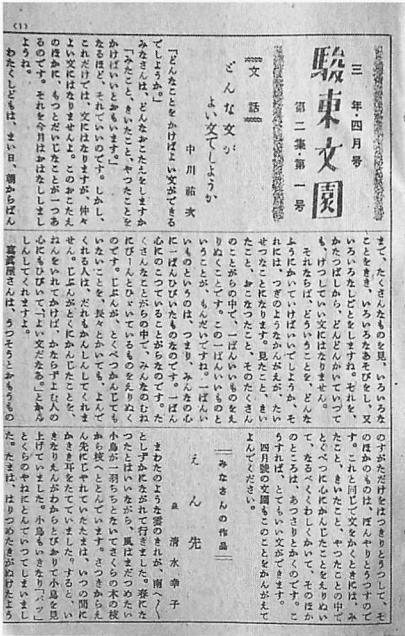 (1)
三年・四月号
駿東文園
第二集第一号
文話
どんな文が
よい文でしようか
中川祐次
「どんなことをかけばよい文ができる
でしようか。」
みなさんは、どんなおこたえをしますか
「みたこと、きいたこと、やつたことを
かけばいいとおもいます。」
なるほど、それでいいのです。しかし、
これだけでは、文にはなりますが、仲々
よい文にはなりませんよ。このおこたえ
のほかに、もつとだいじなことが一つあ
るのです。それを今月はおはなししまし
ようね。
わたくしどもは、まい日、朝からばん
まで、たくさんなものを見、いろいろな
ことをきき、いろいろなあそびをし、又
いろいろなしごとをしますね。それを、
かたつぱしから、どんどんかいていつて
も、けつしていい文にはなりません。
それならば、どういうことを、どんな
ふうにかいていけばいいでしようか。そ
れには、つぎのようなかんがえが、たい
せつなことになります。見たこと、きい
たこと、おこなつたこと、そのたくさん
のことがらの中で、一ばんいいものをえ
りぬくことです。この一ばんいいものと
いうことが、もんだいですね。一ばんい
いものというのは、つまり、みんなの心
に一ばんひびいたものなのです。一ばん
心にのこつていることがらなのです。た
くさんなことがらの中で、みんなのむね
にぴーんとひびいているものをえりぬく
のです。じぶんが、とくべつかんじても
いないことを、長々とかいても、よんで
くれる人は、だれもかんしんしてくれま
せん。じぶんがとくにかんじたことを、
ねんをいれてかけば、かならずよむ人の
心にもひびいて、「よい文だなあ。」とかん
しんしてくれますよ。
寫眞屋さんは、うつそうとおもうもの
のすがただけをはつきりとうつして、そ
のほかのものは、ぼんやりとうつすので
す。これと同じで文をかくときには、み
たこと、きいたこと、やつたことの中で
とくべつに心にかんじたことをえりぬい
て、なるべくくわしくかいて、そのほか
のところは、あつさりとかくのです。こ
うすれば、とてもいい文ができます。
四月號の文園もこのことをかんがえて
よんでください。
みなさんの作品
えん先
泉 清水幸子
まわたのような雲のきれが、南へ〳〵
としずかにながれて行きました。春にな
つたとはいいながら、風はまだつめたい
小鳥が一羽ちらといてさくらの木の枝
から枝へととんでいます。さつきからえ
ん先にじやれていたたまは、いつの間に
かきき耳をたてていました。すると、い
きなりえんがわからとびおりて小鳥を見
上げていました。小鳥もいきなり「パッ」
ととくらのやねにとんでいつてしまいまし
た。たまは、はりつめたきがぬけたよう